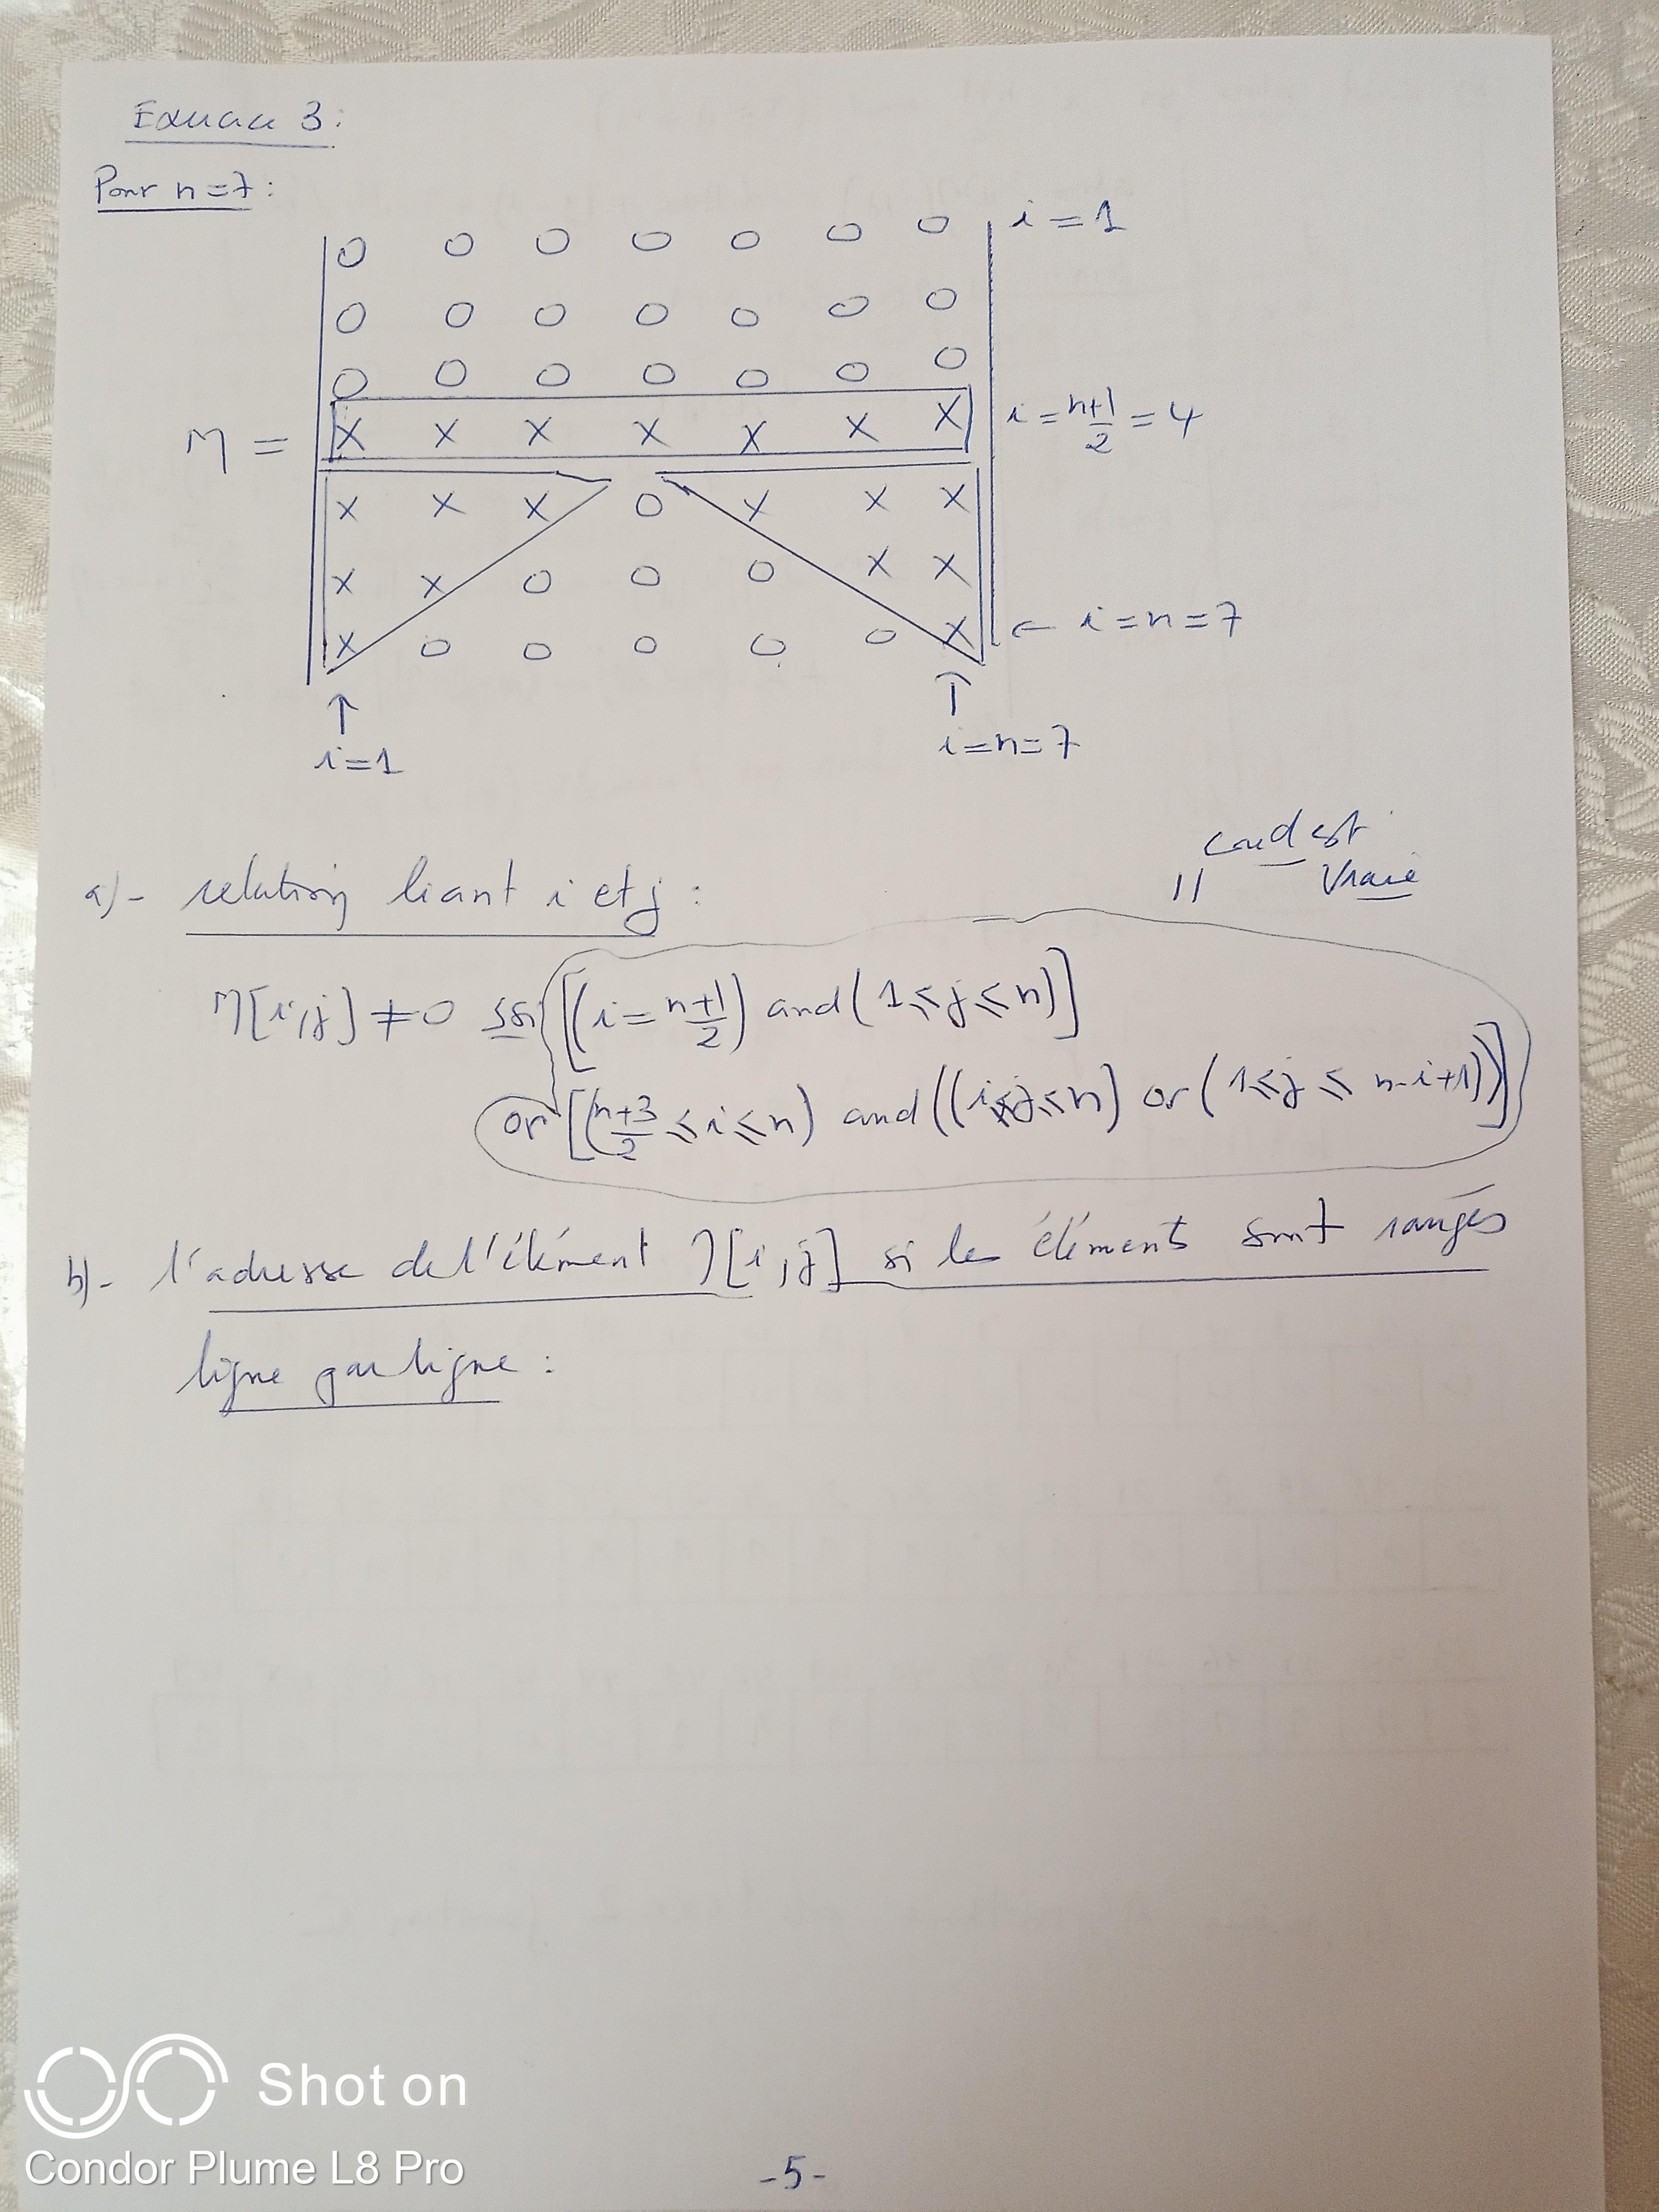 Exercice 3:
Pour n=7:
0 0 0 0 0 0 0 i=1
0 0 0 0 0 0 0
0 0 0 0 0 0 0
M = X X X X X X X i=n+1/2=4
X X X 0 X X X
X X 0 0 0 X X
X 0 0 0 0 0 X ← i=n=7
↑ ↑
i=1 i=n=7
a)- relation liant i et j:
// cond est
vraie
M[i,j]≠0 ssi [(i=n+1/2) and (1≤j≤n)]
or [(n+3/2≤i≤n) and ((i≤j≤n) or (1≤j≤n-i+1))]
b)- l'adresse de l'élément M[i,j] si les éléments sont rangés
ligne par ligne:
Shot on
Condor Plume L8 Pro
-5-